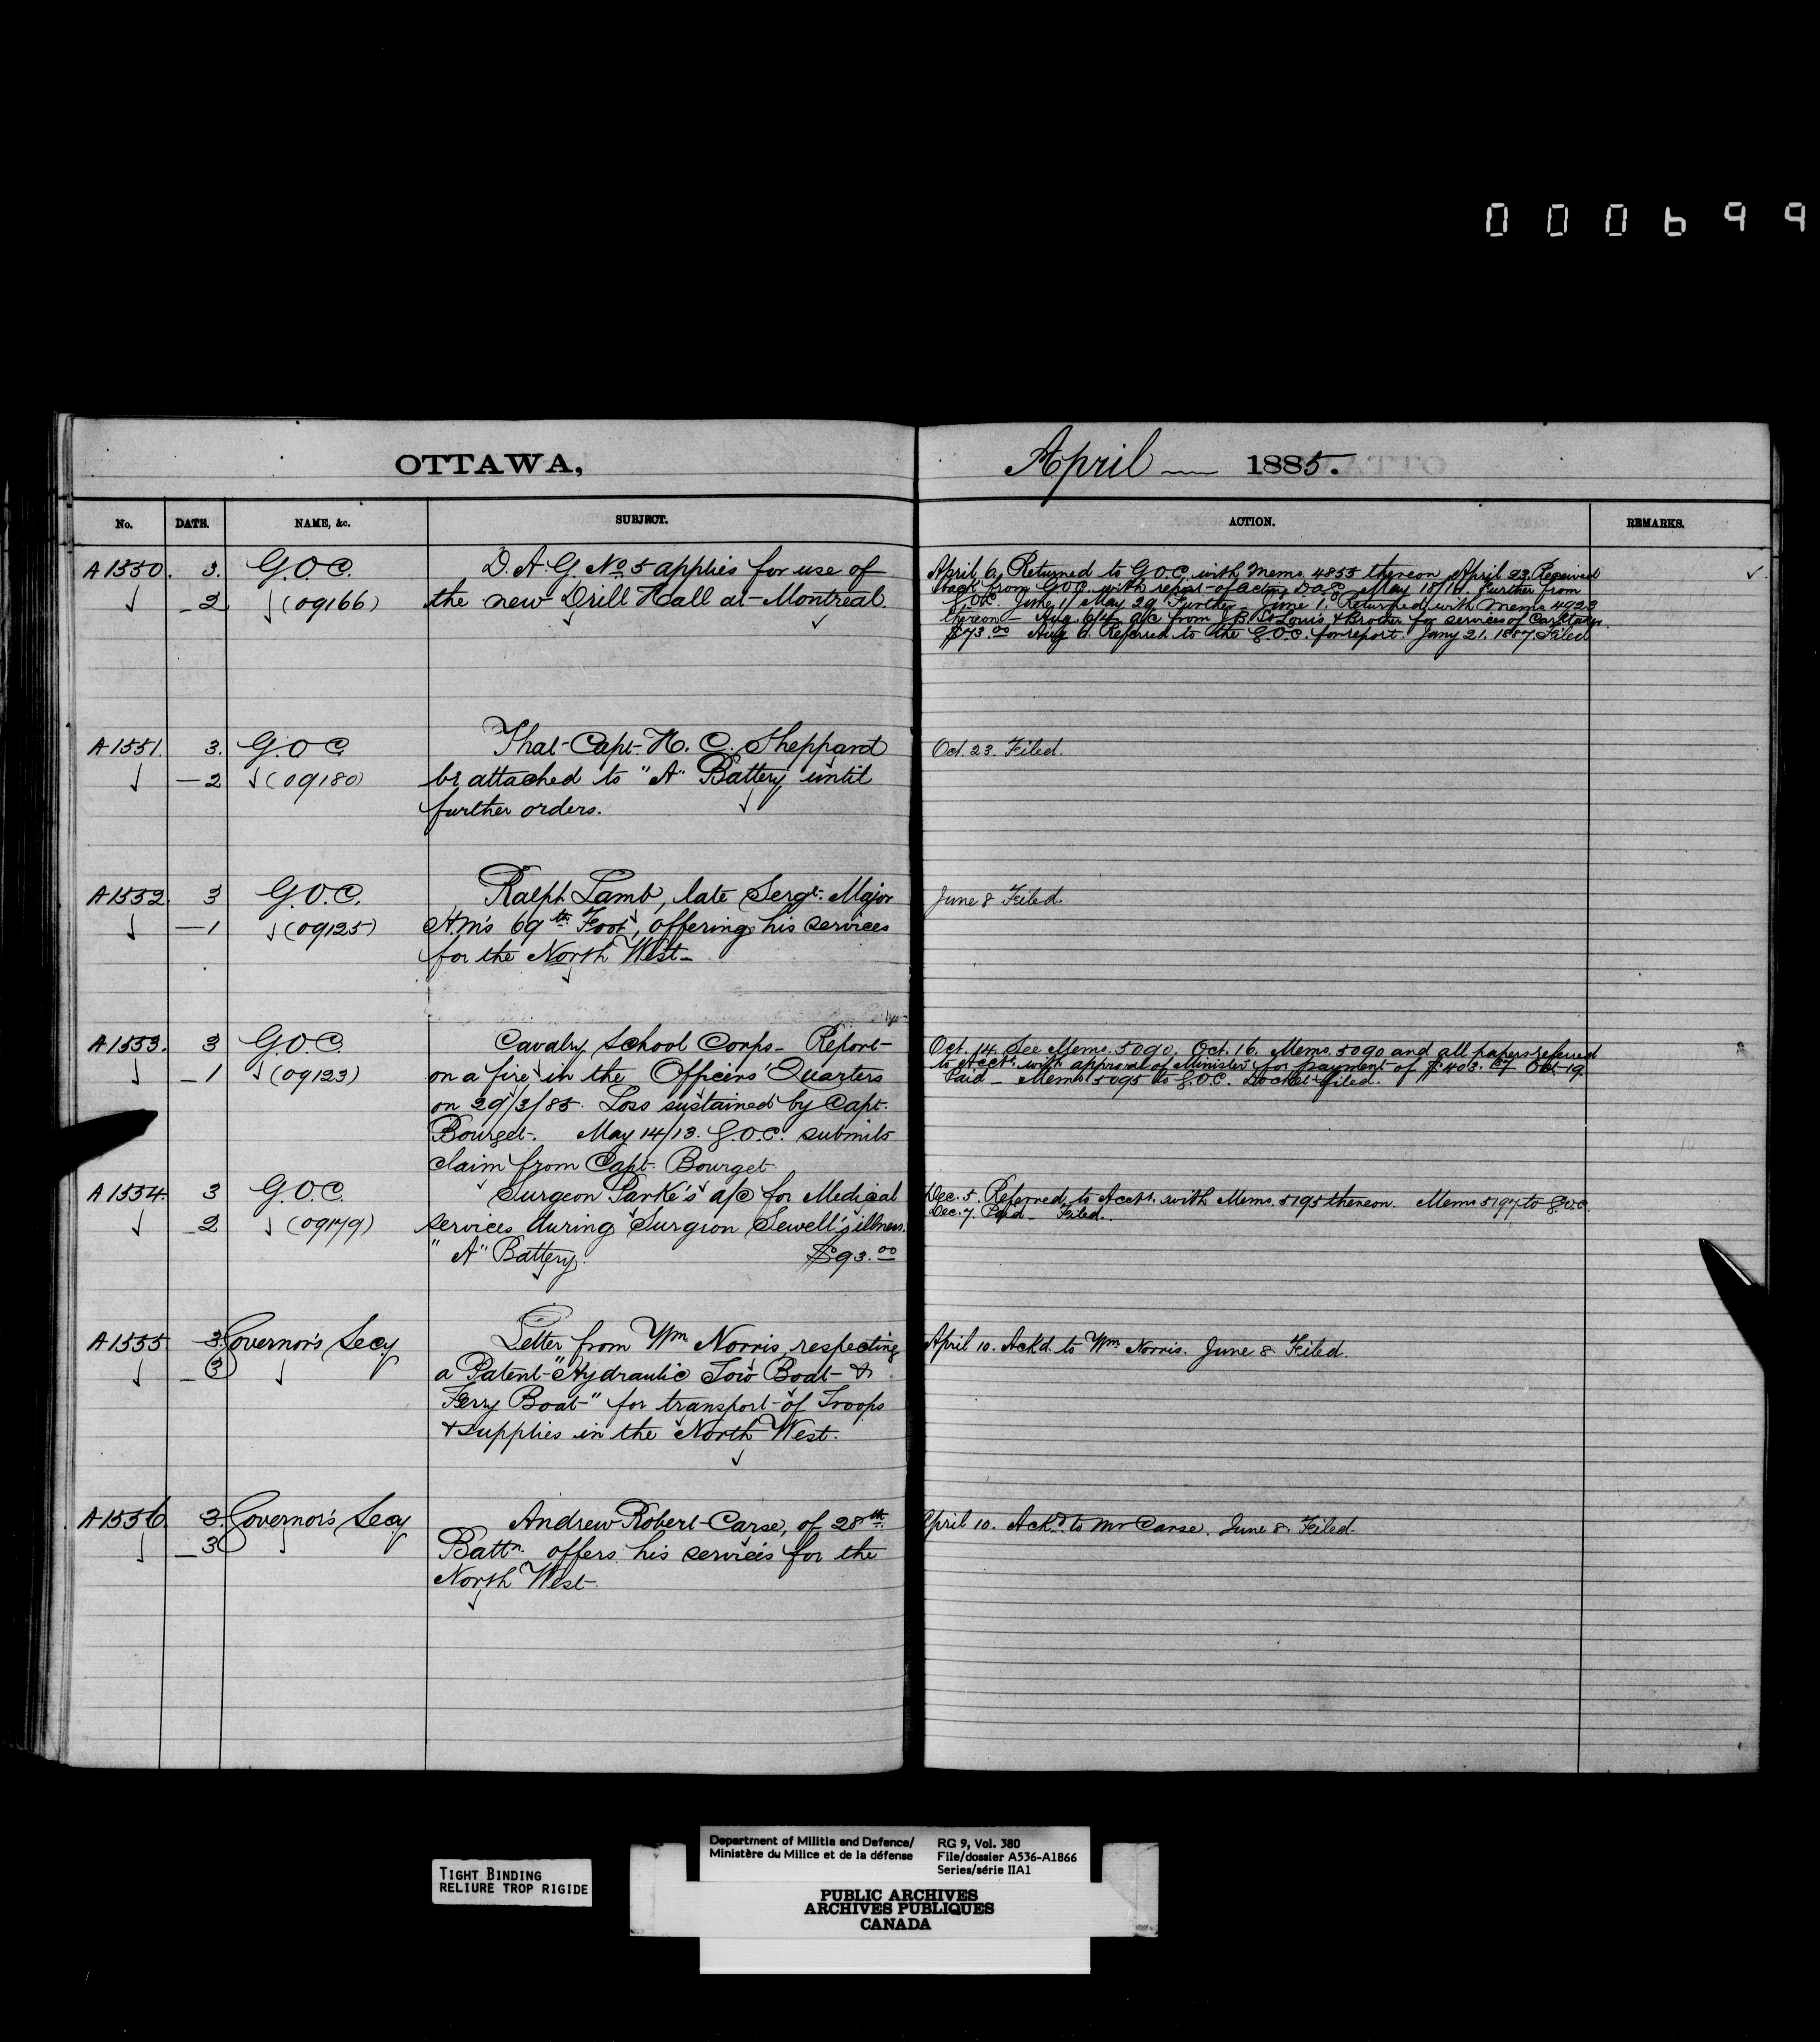 000699
OTTAWA, April 1885.
No. DATE. NAME, &c. SUBJECT. ACTION. REMARKS.
A1550. 3. G.O.C. D.A.G. No 5 applies for use of
2 (09166) the new Drill Hall at Montreal.
April 6. Returned to G.O.C. with Memo. 4855 thereon. April 23. Received
back from G.O.C. with report of acting D.A.G. May 18/16. Further from
G.O.C. June 1/May 29. Further. June 1. Returned with Memo 4923
thereon. Aug. 6/4. a/c from J.B. St Louis & Brother for services of Caretaker.
$73.00 Aug 6. Referred to the G.O.C. for report. Jany 21. 1887. Filed
A1551. 3. G.O.C. That Capt. H. C. Sheppard
2 (09180) be attached to "A" Battery until
further orders.
Oct. 23. Filed.
A1552 3 G.O.C. Ralph Lamb, late Sergt. Major
1 (09125) H.M's 69th Foot, offering his services
for the North West
June 8 Filed.
A1553. 3 G.O.C. Cavalry School Corps - Report
1 (09123) on a fire in the Officers' Quarters
on 29/3/85. Loss sustained by Capt.
Bourget. May 14/13. G.O.C. submits
claim from Capt. Bourget
Oct. 14. See Memo. 5090. Oct. 16. Memo. 5090 and all papers referred
to Acct. with approval of Minister for payment of $403. Oct 19
Paid - Memo 5095 to G.O.C. Docket filed.
A1554. 3 G.O.C. Surgeon Parke's a/c for Medical
2 (09179) services during Surgeon Sewell's illness.
"A" Battery. $93.00
Dec. 5. Referred to Acct. with Memo. 5195 thereon. Memo 5197 to G.O.C.
Dec. 7. Paid - Filed.
A1555 3. Governor's Secy Letter from Wm Norris, respecting
3 a Patent "Hydraulic Tow Boat &
Ferry Boat" for transport of Troops
& supplies in the North West.
April 10. Ackd. to Wm Norris. June 8 Filed.
A1556 3. Governor's Secy Andrew Robert Carse, of 28th
3 Battn. offers his services for the
North West.
April 10. Ackd to Mr Carse. June 8. Filed.
TIGHT BINDING
RELIURE TROP RIGIDE
Department of Militia and Defence/
Ministère du Milice et de la défense
RG 9, Vol. 380
File/dossier A536-A1866
Series/série IIA1
PUBLIC ARCHIVES
ARCHIVES PUBLIQUES
CANADA